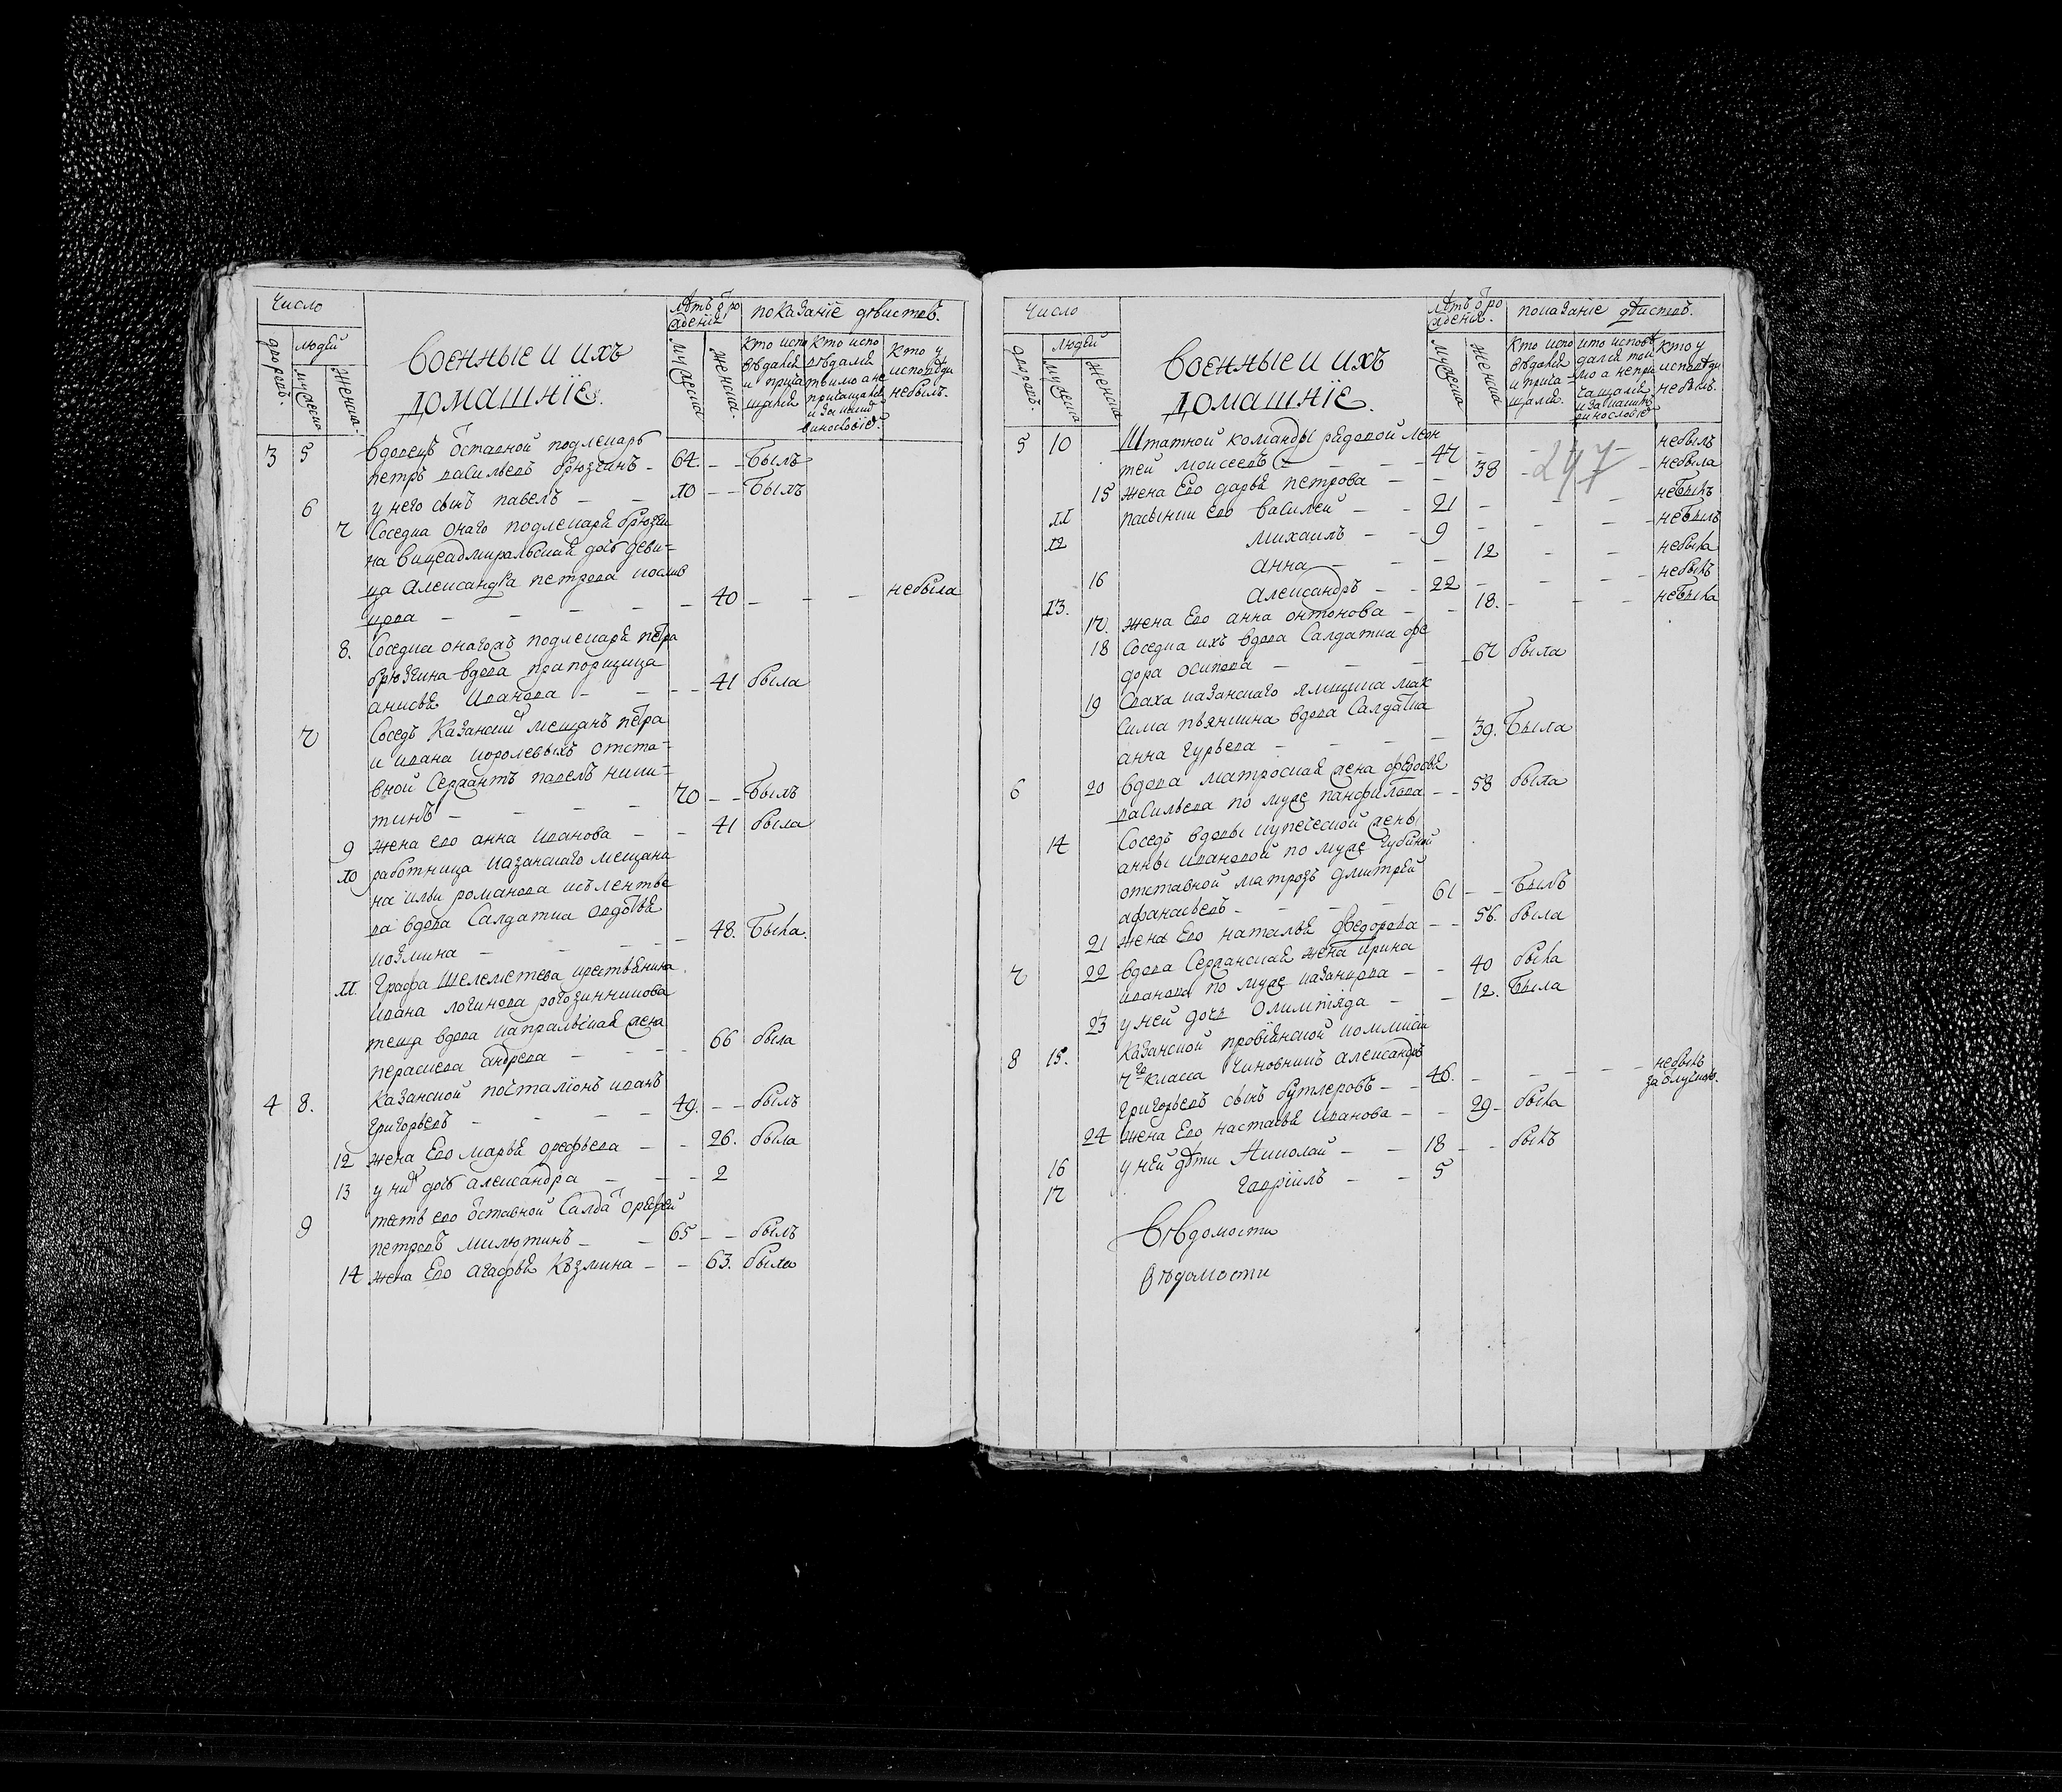 Число
Лѣтъ ѿ ро
жденїя
показанїе дѣиствъ.
дворовъ.
людей
мужеска
женска.
военные и ихъ
домашнїе.
мужеска
женска.
Кто испо
вѣдался
и прича
щался
Кто испо
вѣдался
токмо а не
причащался
и за какимъ
винословїемъ
Кто у
исповѣди
небылъ.
3 5 вдовецъ ѿставной подлекарь
петръ васильевъ брюзгинъ - 64. - - былъ
6 у него сынъ павелъ - - 10 - - былъ
7 Соседка онаго подлекаря брюзги
на вицеадмиральская дочь деви=
ца Александра петрова
- - - - 40 - - - небыла
8. Соседка онагожъ подлекаря петра
брюзгина вдова прапорщица
анисья Иванова - - - - 41 была
7 Соседъ Казанских мещанъ петра
и ивана королевыхъ отста=
вной Сержантъ павелъ ники=
тинъ - - - - 70 - - былъ
9 жена его анна иванова - - 41 была
10 работница казанскаго мещани
на ильи романова
вдова Салдатка авдотья
козмина - - - - 48. была.
11. Графа Шелеметева крестьянина
ивана логинова рогозинникова
теща вдова капральская жена
парасковья андреева - - - - 66 была
4 8. Казанской почталїонъ иванъ
Григорьевъ - - - - 49. - - былъ
12 жена Его марья арефьева - - 26. была
13 у них дочь александра - - - 2
9 тесть его ѿставной Салдат арефей
петровъ милютинъ - - 65 - - былъ
14 жена Его агафья Козмина - - 63. была
Число
Лѣтъ ѿ ро
жденїя.
показанїе дѣиствъ.
дворовъ.
людей
мужеска
женска
военные и ихъ
домашнїе.
мужеска
женска
Кто испо
вѣдался
и прича
щался.
кто исповѣ
дался ток
мо а непри
чащался
и за какимъ
винословїемъ
Кто у
исповѣди
небылъ.
247
5 10 Штатной команды рядовой леон
тей моисеевъ - - - - 47 - - - небылъ
15 жена Его дарья петрова - - 38 - - небыла
11 пасынки его василей - - 21 - - - небылъ
12 михаилъ - - 9 - - - небылъ
16 анна - - - 12 - - небыла
13. александръ - - 22 - - - небылъ
17. жена Его анна онтонова - - 18. - - небыла
18 Соседка ихъ вдова Салдатка фе
дора осипова - - - - 67 была
19 Сваха казанскаго ямщика мак
сима пьянкина вдова Салдатка
анна гурьева - - - - 39. была
6 20 вдова матроская жена федосья
васильева по муже панфилова - - 58 была
14 Соседъ вдовы купеческой жены
анны ивановой по муже губиной
отставной матрозъ дмитрей
афанасьевъ - - - - 61 - - былъ
21 жена Его наталья федорова - - 56. была
7 22 вдова Сержанская жена ирина
иванова по муже казанцова - - 40 была
23 у ней дочь Олимпїада - - 12. была
8 15. Казанской провїянской коммиси
7го класса Чиновникъ александръ
Григорьевъ сынъ бутлеровъ - - 46. - - - - небылъ
за отлучкою.
24 жена Его настасья иванова - - 29 - была
16 у ней дѣти Николай - - 18 - - былъ
17 гаврїилъ - - 5
Вѣдомости
Вѣдомости